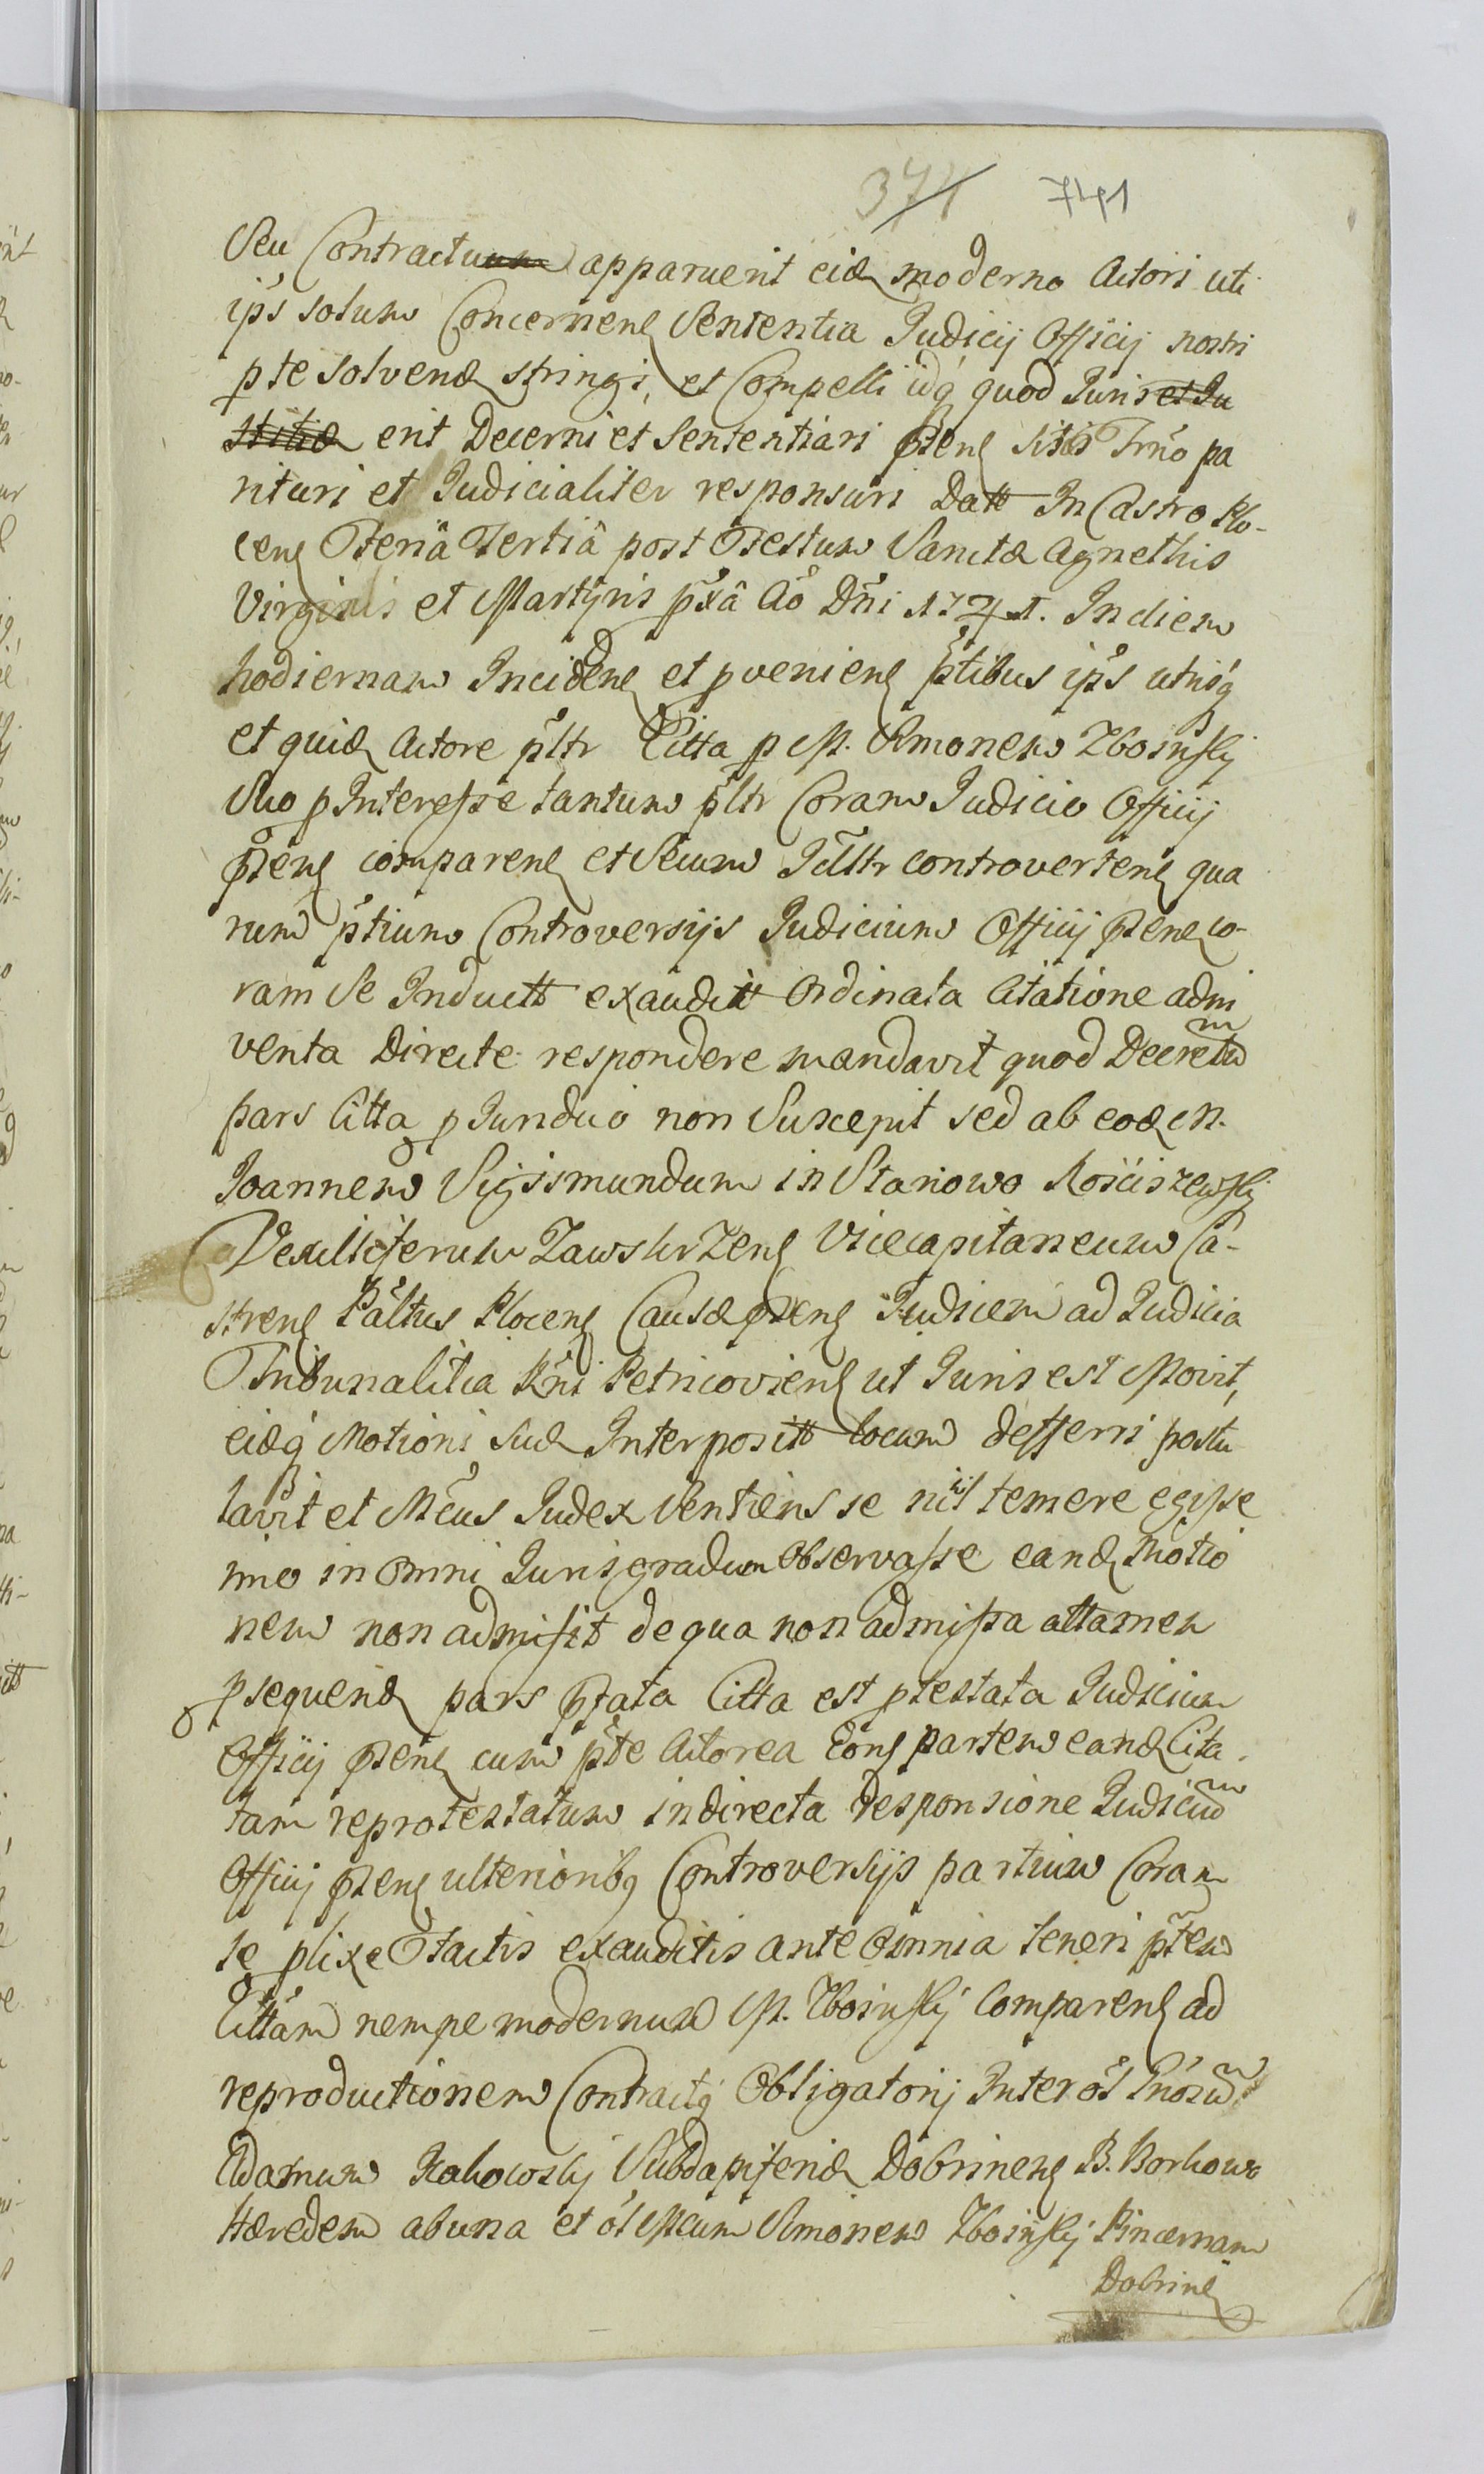 371 741
Seu Contractuum apparuerit eid moderno Actori uti
ips solum Concernen Sententia Judicij Officij nostri
pte solvend stringi, et Compelli idq quod Juris et Ju
stitiæ erit Decerni et Sententiari pten sitis Trno pa
rituri et Judicialiter responsuri Datt In Castro Plo-
cen Feriâ Tertiâ post Festum Sanctæ Agnethis
Virginis et Martyris pxâ Ao Dni 1741. In diem
hodiernam Inciden et pvenien ptibus ips utrisq
et quid Actore pltr Citta p M. Simonem Zboinskj
Suo p Interesse tantum pltr Coram Judicio Officij
pten comparen et Secum Jdltr controverten qua
rum ptium Controversijs Judicium Officij pten co-
ram se Inductt exauditt Ordinata Citatione adin
venta Directe respondere mandavit quod Decretum
pars Citta p Juridico non Suscepit sed ab eod M.
Joannem Sigismundum in Stanowo Rościszewskj
Vexilliferum Zawskrzen Vicecapitaneum Ca-
stren Paltus Plocen Causæ pten Judicem ad Judicia
Tribunalitia Rni Petricovien ut Juris est Movit,
eidq Motioni suæ Interpositt locum defferri postu
lavit et Mcus Judex Sentiens se nihil temere egisse
imo in Omni Juris gradum Observasse eand Motio
nem non admisit de qua non admissa attamen
psequend pars pfata Citta est ptestata Judicium
Officij pten cum pte Actorea Cons partem eand Cita
tam reprotestatum in directa Responsione Judicium
Officij pten ulterioribq Controversijs partium Coram
se plixe Factis exauditis ante Omnia teneri ptem
Cittam nempe modernum M. Zboinskj Comparen ad
reproductionem Contractq Obligatorij Inter ol Gnosum
Adamum Rakowskj Subdapiferid Dobrinen B. Borkowo
Hæredem ab una et ol Mcum Simonem Zboinskj Pincernam
Dobrinen